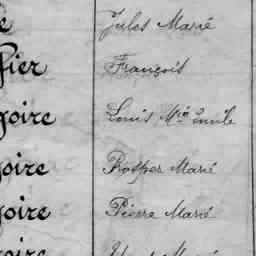 e Jules Marie
fier François
goire Louis Mie Emile
goire Prosper Marie
goire Pierre Marie
goire Marie